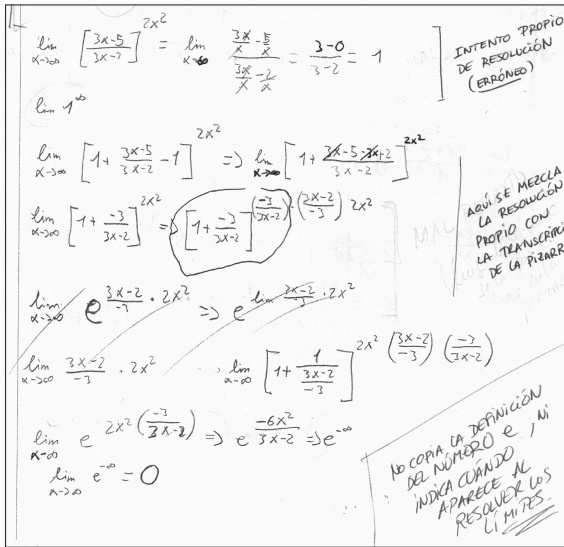 lim x→∞ [3x-5 / 3x-2]^2x² = lim x→∞ (3x/x - 5/x) / (3x/x - 2/x) = (3-0)/(3-2) = 1
INTENTO PROPIO
DE RESOLUCIÓN
(ERRÓNEO)
lim 1^∞
lim x→∞ [1 + (3x-5)/(3x-2) - 1]^2x² => lim x→∞ [1 + (3x-5-3x+2)/(3x-2)]^2x²
lim x→∞ [1 + (-3)/(3x-2)]^2x² => [1 + (-3)/(3x-2)]^(-3/(3x-2))·((3x-2)/-3) 2x²
AQUÍ SE MEZCLA
LA RESOLUCIÓN
PROPIO CON
LA TRANSCRIPCI
DE LA PIZARR
lim x→∞ e^((3x-2)/-3 · 2x²) => e^(lim (3x-2)/-3 · 2x²)
lim x→∞ (3x-2)/-3 · 2x²
lim x→∞ [1 + 1/((3x-2)/-3)]^2x² ((3x-2)/-3) (-3/(3x-2))
lim x→∞ e^(2x² (-3/(3x-2))) => e^(-6x²/(3x-2)) => e^-∞
lim x→∞ e^-∞ = 0
NO COPIA LA DEFINICIÓN
DEL NÚMERO e, NI
INDICA CUÁNDO
APARECE AL
RESOLVER LOS
LÍMITES.